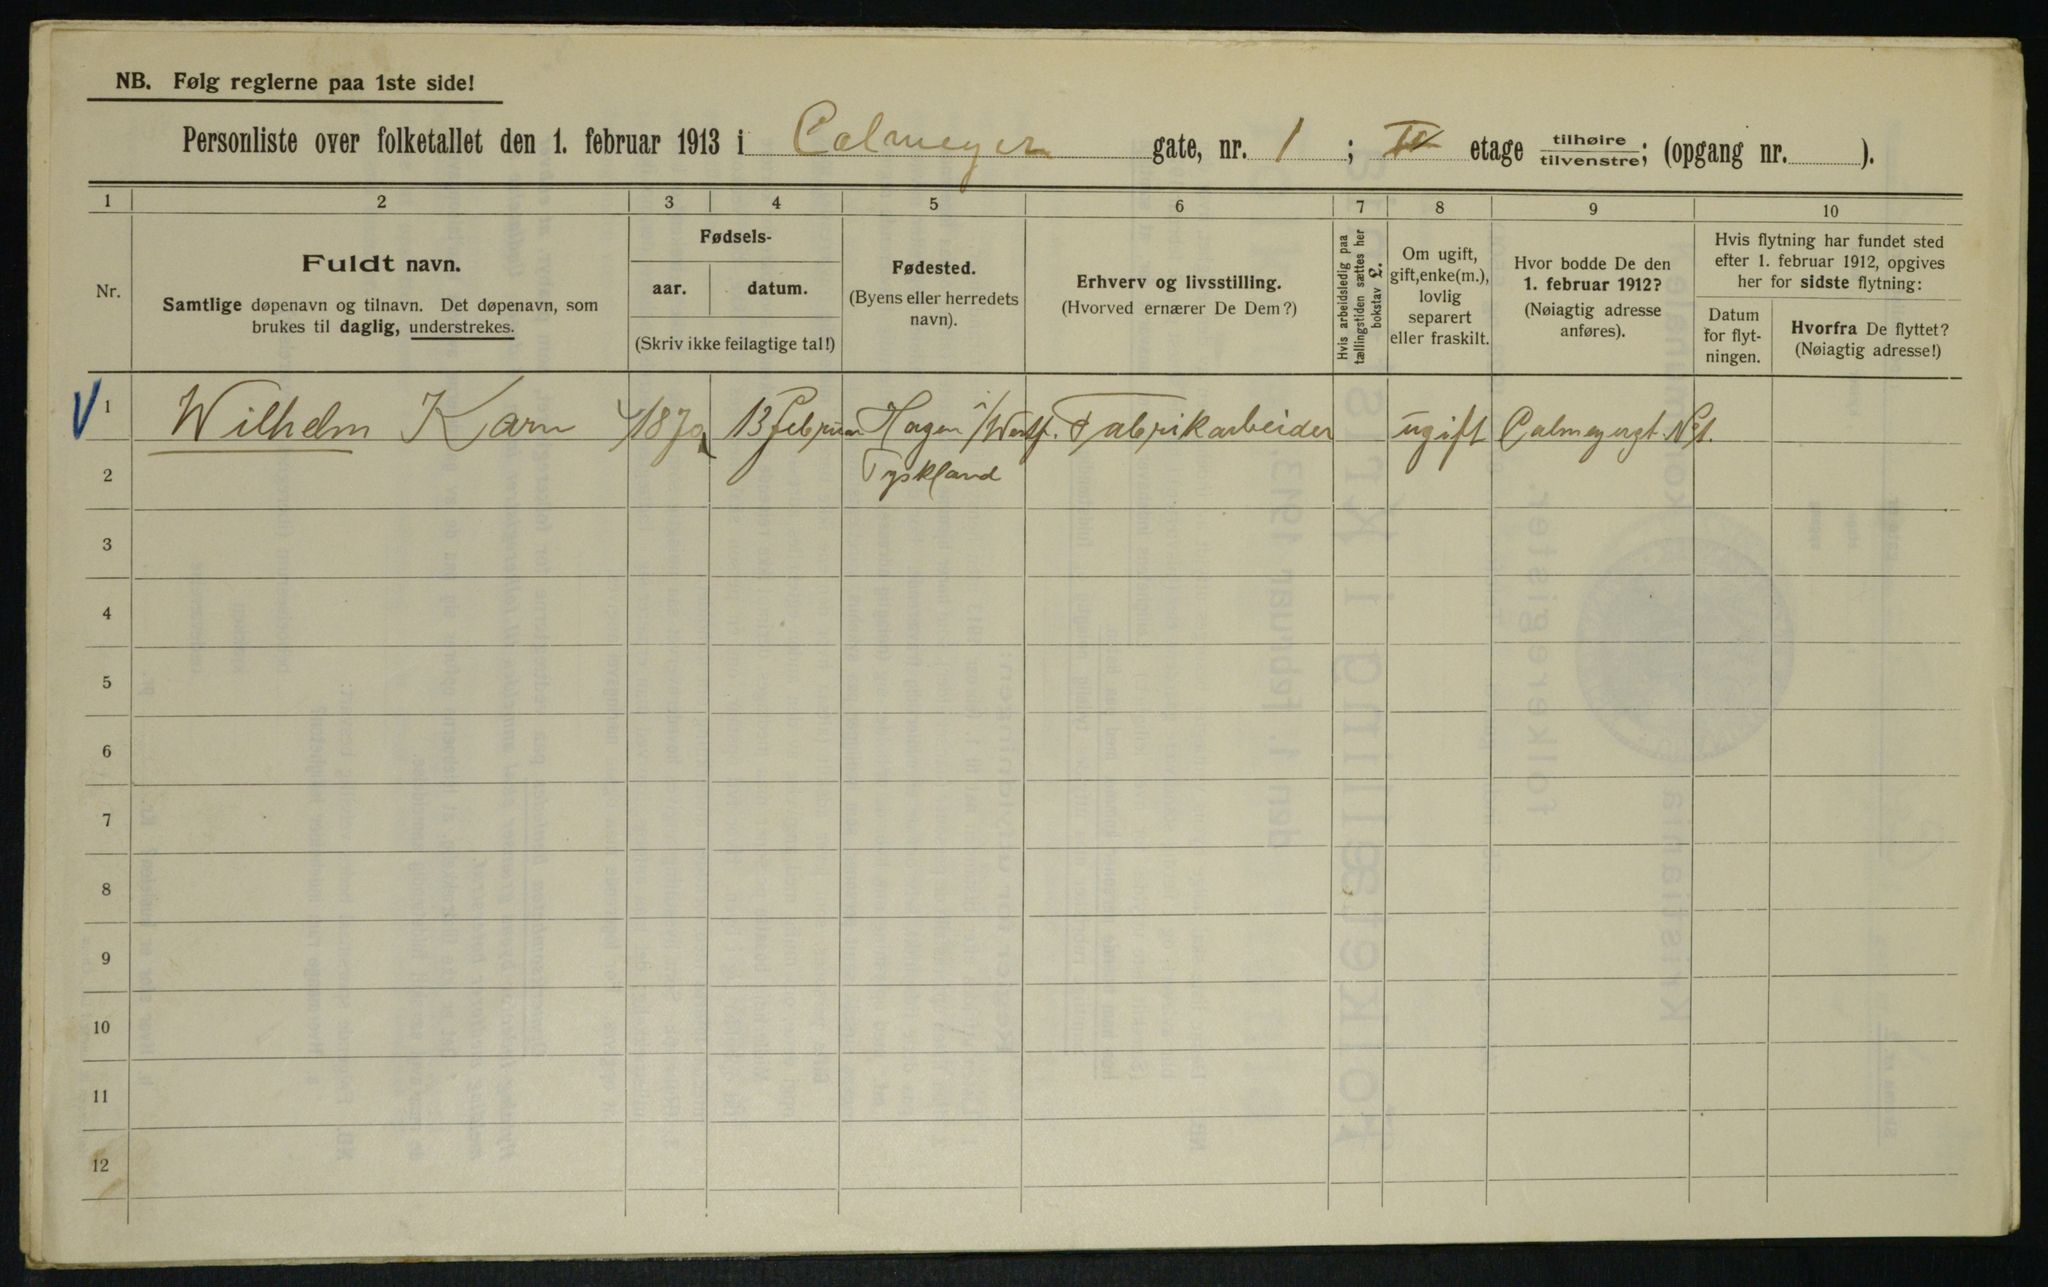 NB. Følg reglerne paa 1ste side!
Personliste over folketallet den 1. februar 1913 i Calmeyer gate, nr. 1 ; IV etage tilhøire tilvenstre; (opgang nr. ).
1 2 3 4 5 6 7 8 9 10
Nr.
Fuldt navn.
Samtlige døpenavn og tilnavn. Det døpenavn, som
brukes til daglig, understrekes.
Fødsels-
aar. datum.
(Skriv ikke feilagtige tal!)
Fødested.
(Byens eller herredets
navn).
Erhverv og livsstilling.
(Hvorved ernærer De Dem?)
Hvis arbeidsledig paa
tællingstiden sættes her
bokstav L.
Om ugift,
gift, enke(m.),
lovlig
separert
eller fraskilt.
Hvor bodde De den
1. februar 1912?
(Nøiagtig adresse
anføres).
Hvis flytning har fundet sted
efter 1. februar 1912, opgives
her for sidste flytning:
Datum
for flyt-
ningen.
Hvorfra De flyttet?
(Nøiagtig adresse!)
V 1 Wilhelm Karn 1870 13 Februar Hagen i/Westf. Fabrikarbeider ugift Calmeyergt. No 1.
2 Tyskland
3
4
5
6
7
8
9
10
11
12